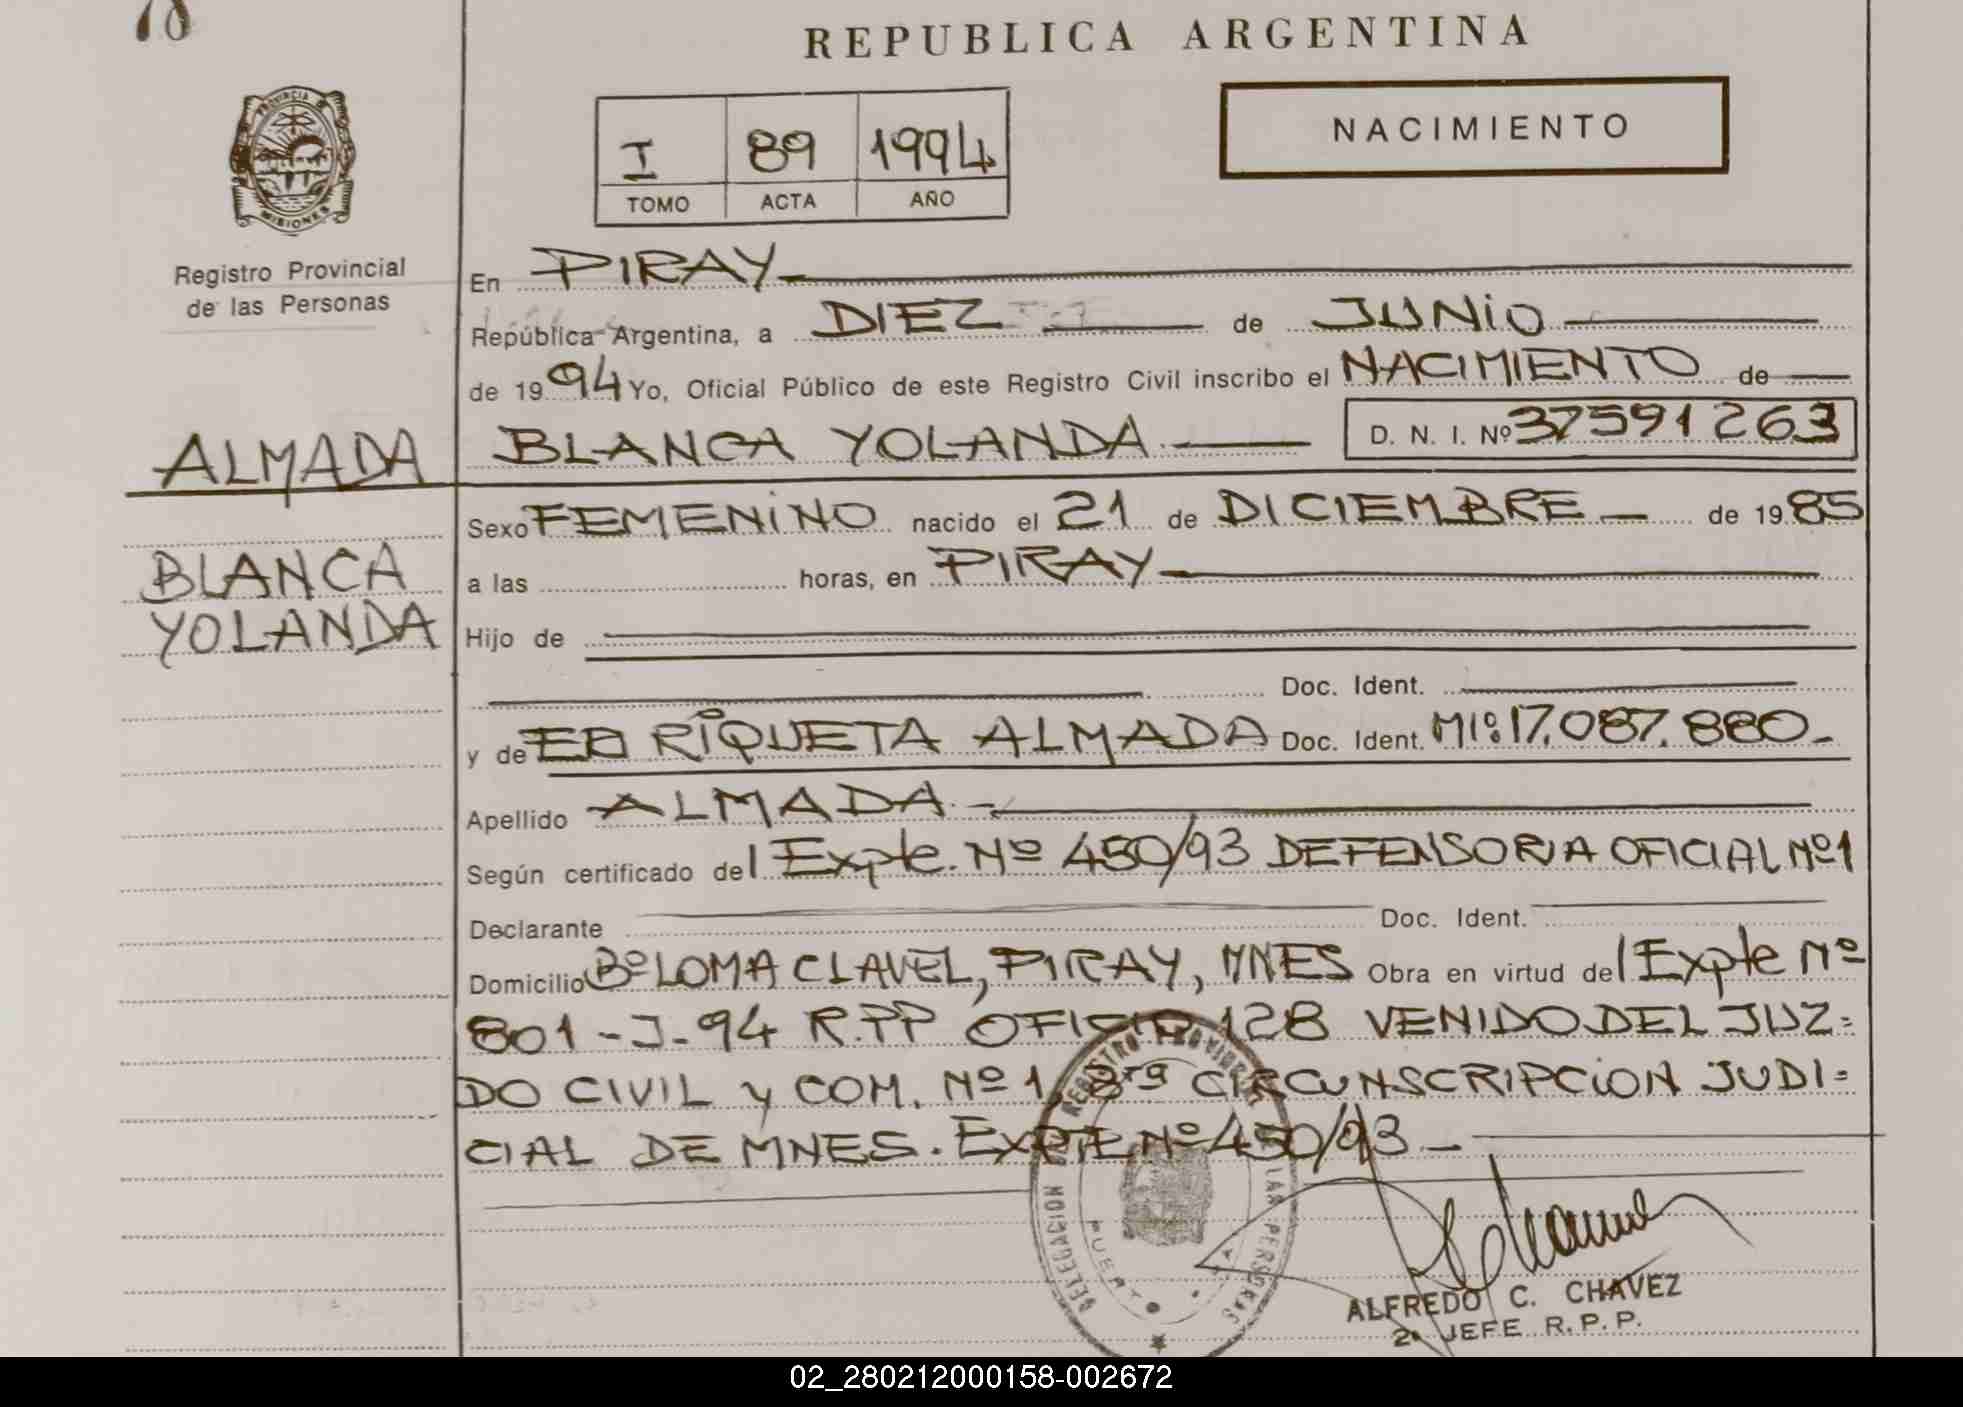 18
REPUBLICA ARGENTINA
PROVINCIA DE
MISIONES
I 89 1994
TOMO ACTA AÑO
NACIMIENTO
Registro Provincial
de las Personas
En PIRAY
República Argentina, a DIEZ de JUNIO
de 1994 Yo, Oficial Público de este Registro Civil inscribo el NACIMIENTO de
BLANCA YOLANDA D. N. I. Nº 37591263
ALMADA
BLANCA
YOLANDA
Sexo FEMENINO nacido el 21 de DICIEMBRE de 1985
a las horas, en PIRAY
Hijo de
Doc. Ident.
y de RIQUETA ALMADA Doc. Ident. MIº 17.087.880.-
Apellido ALMADA.-
Según certificado del Expte. Nº 450/93 DEFENSORIA OFICIAL Nº1
Declarante Doc. Ident.
Domicilio Bº LOMA CLAVEL, PIRAY, MNES Obra en virtud del Expte Nº
801-J-94 R.PP OFICIO 128 VENIDO DEL JUZ=
DO CIVIL y COM. Nº 1, CIRCUNSCRIPCION JUDI=
CIAL DE MNES. EXPTE Nº 450/93 -
DELEGACION REGISTRO PROVINCIAL DE LAS PERSONAS
PUERTO
ALFREDO C. CHAVEZ
2º JEFE R.P.P.
02_280212000158-002672